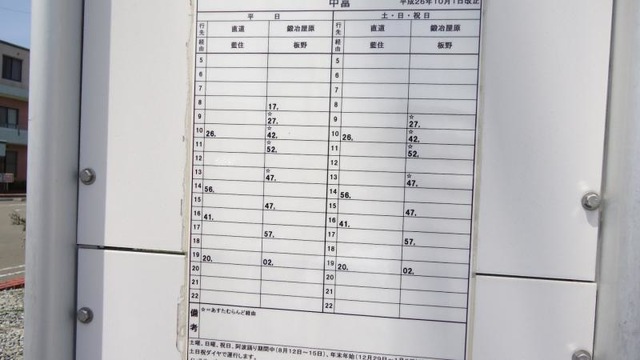 中富 平成26年10月1日改正
平日 土・日・祝日
行先 直道 鍛冶屋原 行先 直道 鍛冶屋原
経由 藍住 板野 経由 藍住 板野
5 5
6 6
7 7
8 17. 8
9 ☆27. 9 ☆27.
10 26. ☆42. 10 26. ☆42.
11 ☆52. 11 ☆52.
12 12
13 ☆47. 13 ☆47.
14 56. 14 56.
15 47. 15 47.
16 41. 16 41.
17 57. 17 57.
18 18
19 20. 02. 19 20. 02.
20 20
21 21
22 22
備考 ☆=あすたむらんど経由
土曜、日曜、祝日、阿波踊り期間中(8月12日~15日)、年末年始(12月29日~1月
土日祝ダイヤで運行します。